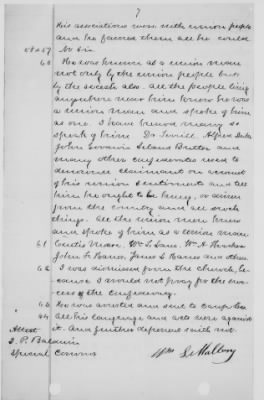 7
His associations were with union people
and he favored them all he could
No Sir
60 He was known as a union man
not only by the union people but
by the secesh also. all the people living
anywhere near him knew he was
a union man and spoke of him
as one. I have heard many so
speak of him. Dr
John Leland
many other confederates used to
denounce claimant on account
of his union sentiments and tell
him he ought to be hung, or driven
from the country and all such
things. All the union men knew
and spoke of him as a union man
61 Wm
John F. James L. and others
62 I was dismissed from the church, be-
cause I would not pray for the suc-
cess of the confederacy.
63 He was arrested and sent to
64 All his language and acts were against
it. And further deposes saith not.
Attest
S. P. Baldwin
Special Commr
Wm S. Mallory